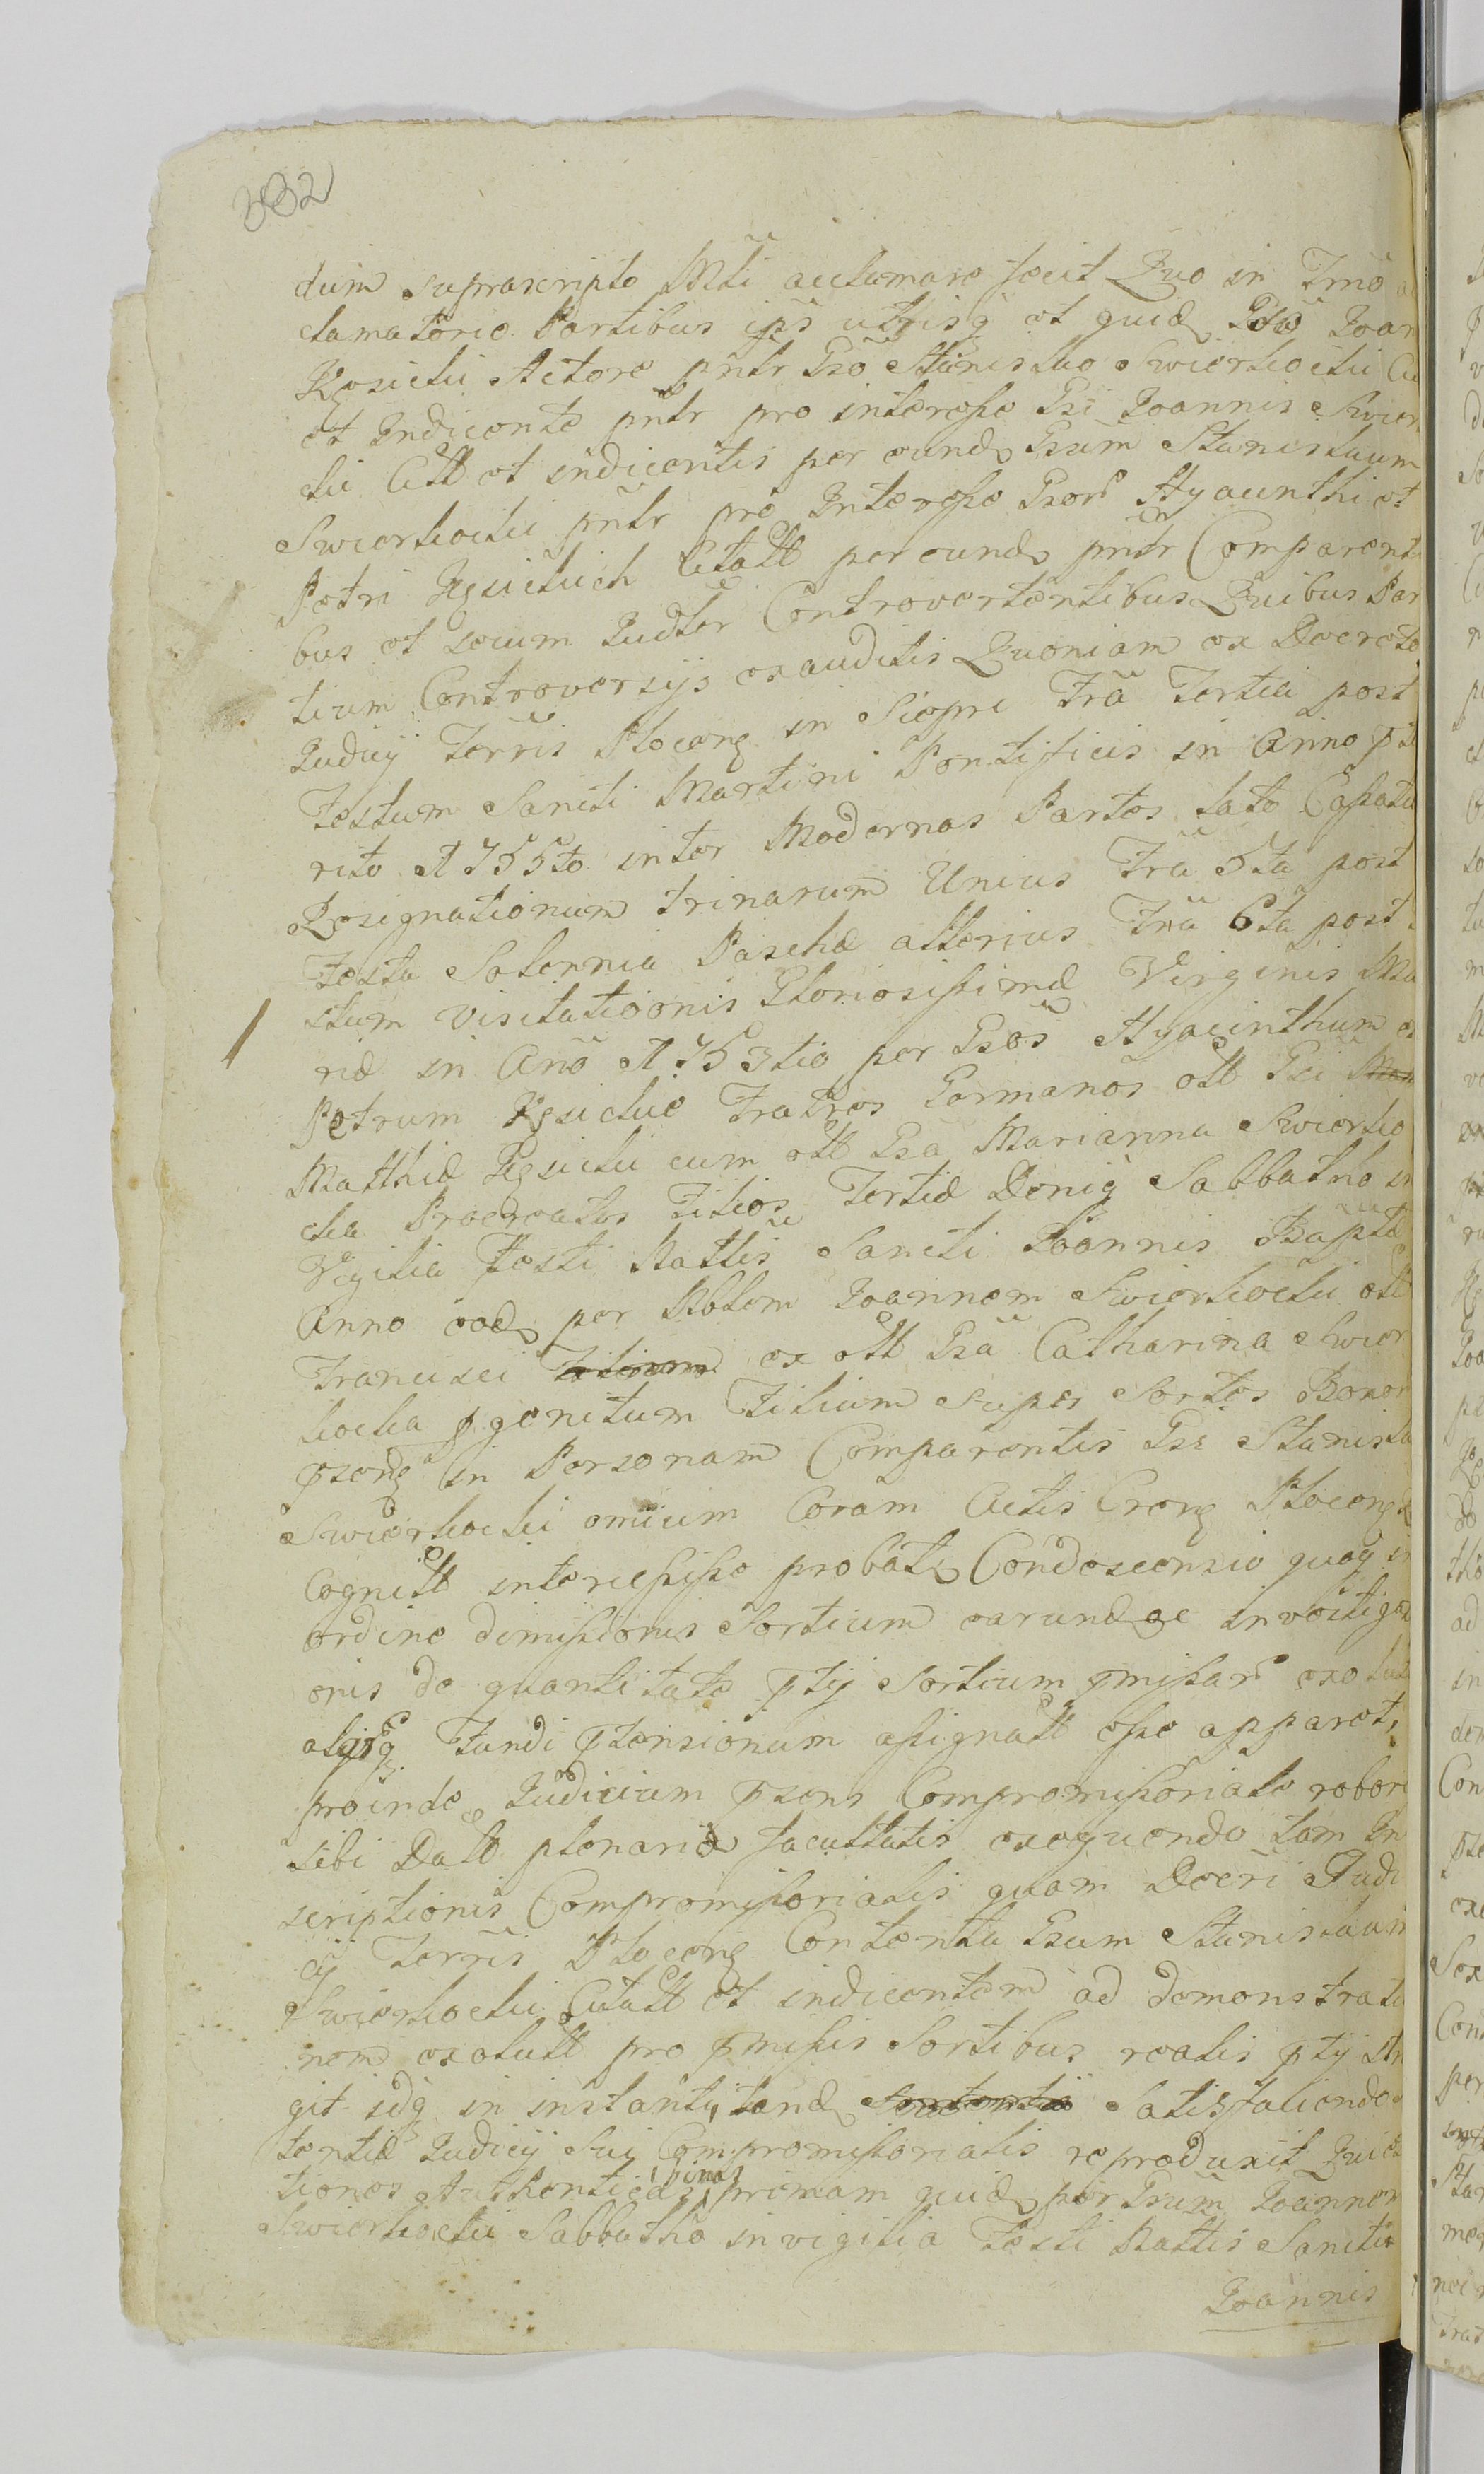 332
dum suprascripto Mlti acclamare fecit Quo in Tmo
clamatorio Partibus ips utrisq et quid Gso Joan
Kosicki Actore pntr Gso Stanislao Swierkocki
et Indicente pntr pro interesse Gsi Joannis Swier
cki Citt et indicentis per eund Gsum Stanislaum
Swierkocki pntr pro Interesse Gsor Hyacinthi et
Petri Kosickich Citatt per eund pntr Comparenti
bus et secum Judtr Controvertentibus Quibus Par
tium Controversijs exauditis Quoniam ex Decreto
Judicij Terris Plocens in Sierpc Fra Tertia post
Festum Sancti Martini Pontificis in Anno
rito 1755to inter Modernas Partes lato Capatu
Resignationum trinarum Unius Fra 5ta post
Festa Solennia Paschæ alterius Fra 6ta post
stum Visitationis Gloriosissimæ Virginis Ma
riæ in Ano 1753tio per Gsos Hyacinthum
Petrum Kosickie Fratres Germanos olt Gsi
Matthiæ Kosicki cum olt Gsa Marianna Swierko
cka Procreatos Filios Tertiæ Deniq Sabbatho in
Vigilia Festi Nattis Sancti Joannis Bapta
Anno eod per Nblem Joannem Swierkocki olt
Francisci Filium ex olt Gsa Catharina Swier
kocka pgenitum Filium super Sortes Bonor
psens in Personam Comparentis Gsi Stanisla
Swierkocki omium Coram Actis Crens Plocens
Cognitt intercessisse probat Condescensio quoq in
ordine dimissionis Sortium earund ac investigati
onis de quantitate ptij Sortium pmissar exolut
alijsq Fundi ptensionum assignatt esse apparet,
proinde Judicium psens Compromissoriale robore
sibi Datt plenariæ facultatis exequendo tam In
scriptionis Compromissorialis quam Decri Judi
cij Terris Plocens Contenta Gsum Stanislaum
Swierkocki Citatt et indicentem ad demonstratio
nem exolutt pro pmissis Sortibus realis ptij
git idq in instanti, tand Sententiæ Satisfaciendo
tentiæ Judicij sui Compromissorialis reproduxit Quieta
tiones Authenticas binas primam quid per Gsum Joannem
Swierkocki Sabbatho in vigilia Festi Nattis Sancti
Joannis